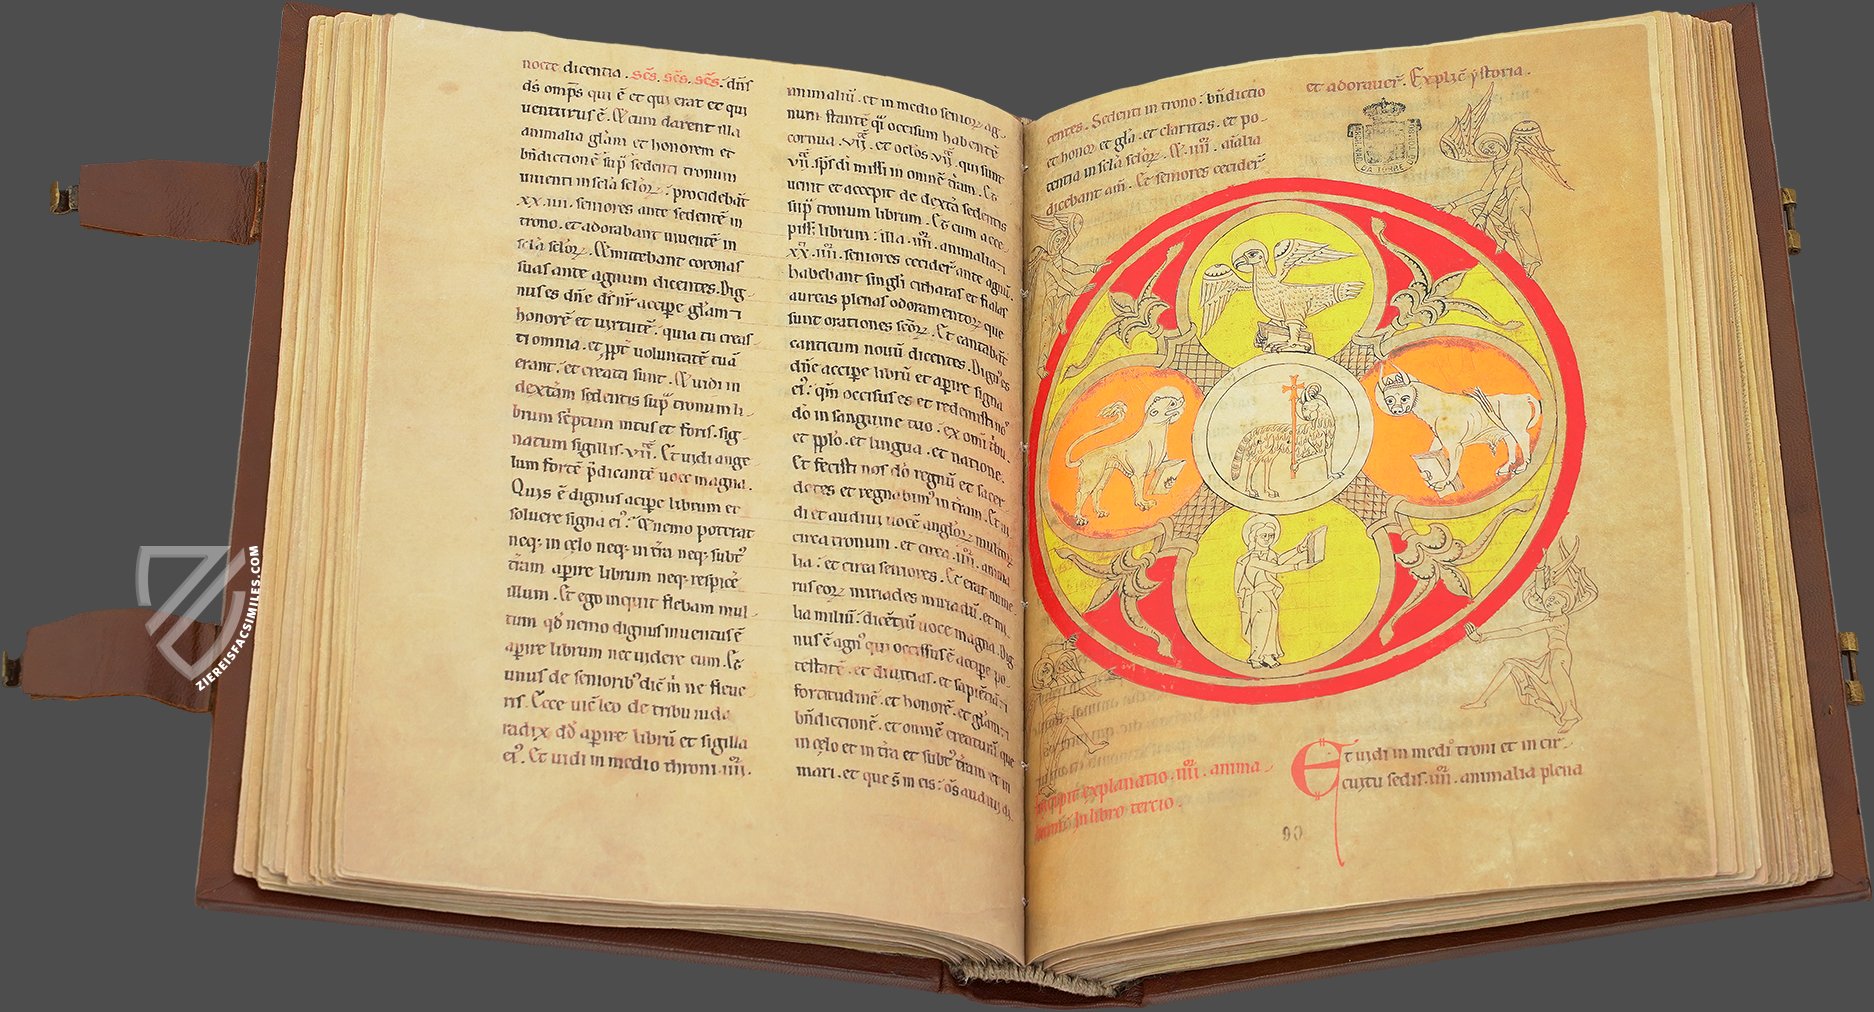 nocte dicentia . sc̄s. sc̄s. sc̄s. : dn̄s
ds̄ omps̄ qui ē et qui erat et qui
venturus ē. Et cum darent illa
animalia glam̄ et honorem et
bn̄dictionē sup̄ sedenti tronum
uiuenti in scl̄a scl̄oꝝ : procidebant̄
xx. iiii. seniores ante sedentē in
trono . et adorabant uiuentē in
scl̄a scl̄oꝝ. Et mitebant coronas
suas ante agnum dicentes. Dig-
nus es dn̄e ds̄ nr̄ accipe glam̄ ⁊
honorē et uirtutē . quia tu creas-
ti omnia . et ppt̄ voluntatē tuā
erant . et creata sunt . Et uidi in
dextam̄ sedentis sup̄ tronum li-
brum sc̄ptum intus et foris . sig-
natum sigillis . vii. Et uidi ange-
lum fortē p̄dicantē uoce magna.
Quis ē dignus acipe librum et
soluere signa ei : Et nemo poterat
neq; in celo neq; in tr̄a neq; subt̄
tr̄am apire librum neq; respicē
illum . Et ego inquit flebam mul-
tum qđ nemo dignus inuentus ē
apire librum nec uidere eum . Et
unus de seniorib; dīc m̄ ne fleue-
ris . Ecce uic̄ leo de tribu iuda
radix dd̄ apire librū et sigilla
ei. Et uidi in medio throni . iiii.
animaliū . et in medio senioꝝ ag-
num stantē q̄i occisum habentē
cornua . vii . et oclos . vii. qui sunt
vii. sps̄ dī missi in omnē tr̄am . Et
uenit et accepit de dextā sedentis
sup̄ tronum librum . Et cum acce-
pisš librum : illa . iiii. animalia ⁊
xx. iiii. seniores cecider̄ ante agnū.
habebant singli citharas et fialas
aureas plenas odoramentoꝝ que
sunt orationes sc̄oꝝ. Et cantabant̄
canticum nouū dicentes. Dign; es
dn̄e accipe librū et apire signa
ei : qm̄ occisus es et redemisti nos
dō in sanguine tuo : ex omī tribu
et pplo . et lingua . et natione .
Et fecisti nos dō regnū et sacer
dotes et regnabim; in tr̄am . Et ui
di et audiui uocē angloꝝ multoꝝ
circa tronum . et circa . iiii. anima
lia : et circa seniores . Et erat nume-
rus eoꝝ miriades miriadū . et mi-
lia miliū : dicētiū uoce magna . Dig
nus ē agn; qui occissus ē accipe po-
testatē . et diuitias . et sapiētiā ⁊
fortitudinē . et honorē . et glam̄ ⁊
bn̄dictionē . et omnē creaturā que
in celo et in tr̄a et subt̄ tr̄am et in
mari . et que s̄ in eis : oš audiui di
centes . Sedenti in trono : bn̄dictio
et honor et gla . et claritas . et po-
tentia in scl̄a scl̄oꝝ. Et . iiii . aīalia
dicebant am̄ . Et seniores cecider̄
et adorauer̄ . Explic̄ ystoria .
DA TORRE
explanatio . iiii . anima-
In libro tercio
Et uidi in medi troni et in cir-
cuitu sedis . iiii . animalia plena
90
ZIEREISFACSIMILES.COM